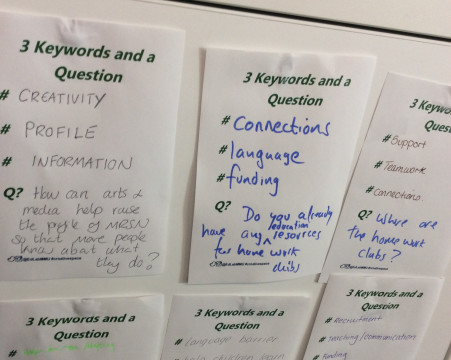 3 Keywords and a
Question
# CREATIVITY
# PROFILE
# INFORMATION
Q? How can arts &
media help raise
the profile of MRSN
so that more people
know about what
they do?
3 Keywords and a
Question
# Connections
# language
# funding
Q? Do you already
have any education resources
for home work
clubs
3 Keywo
Ques
# Support
# Teamwork
# Connections.
Q? Where are
the home work
clubs?
3 Keywords and a
Question
#
3 Keywords and a
Question
# language barrier
# help children learn
3 Keywords and a
Question
# Recruitment
# teaching/communication
# funding